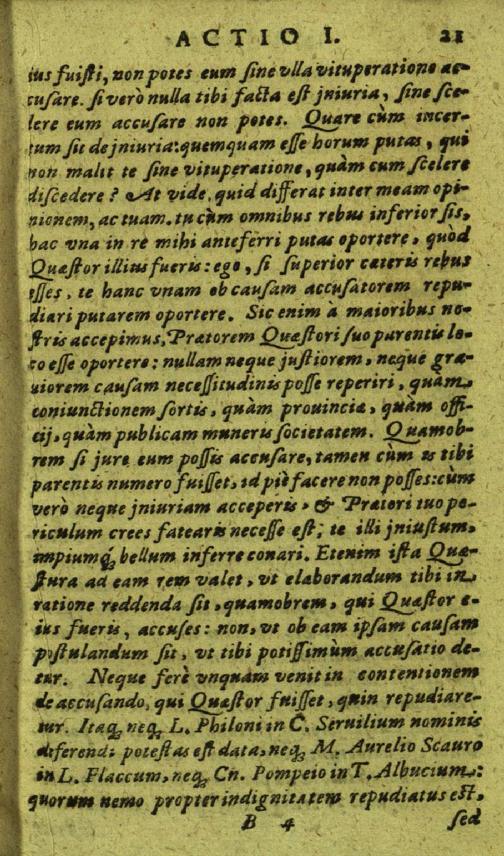 ACTIO I. 21
ius fuiſti, non potes eum ſine vlla vituperatione ac-
cuſare. ſi verò nulla tibi facta eſt jniuria, ſine ſce-
lere eum accuſare non potes. Quare cùm incer-
tum ſit de jniuria: quemquam eſſe horum putas, qui
non malit te ſine vituperatione, quàm cum ſcelere
diſcedere? At vide, quid differat inter meam opi-
nionem, ac tuam. tu cùm omnibus rebus inferior ſis,
hac vna in re mihi anteferri putas oportere, quòd
Quæſtor illius fueris: ego, ſi ſuperior cæteris rebus
eſſes, te hanc vnam ob cauſam accuſatorem repu-
diari putarem oportere. Sic enim à maioribus no-
ſtris accepimus, Prætorem Quæſtori ſuo parentis lo-
co eſſe oportere: nullam neque juſtiorem, neque gra-
uiorem cauſam neceſſitudinis poſſe reperiri, quàm
coniunctionem ſortis, quàm prouinciæ, quàm offi-
cij, quàm publicam muneris ſocietatem. Quamob-
rem ſi jure eum poſſis accuſare, tamen cùm is tibi
parentis numero fuiſſet, id piè facere non poſſes: cùm
verò neque jniuriam acceperis, & Prætori tuo pe-
riculum crees fatearis neceſſe eſt, te illi jniuſtum,
impiumq́; bellum inferre conari. Etenim iſta Quæ-
ſtura ad eam rem valet, vt elaborandum tibi in
ratione reddenda ſit, quamobrem, qui Quæſtor e-
ius fueris, accuſes: non, vt ob eam ipſam cauſam
poſtulandum ſit, vt tibi potiſſimùm accuſatio de-
tur. Neque ferè vnquam venit in contentionem
de accuſando, qui Quæſtor fuiſſet, quin repudiare-
tur. Itaq; neq; L. Philoni in C. Seruilium nominis
deferendi poteſtas eſt data, neq; M. Aurelio Scauro
in L. Flaccum, neq; Cn. Pompeio in T. Albucium:
quorum nemo propter indignitatem repudiatus eſt,
B 4 ſed